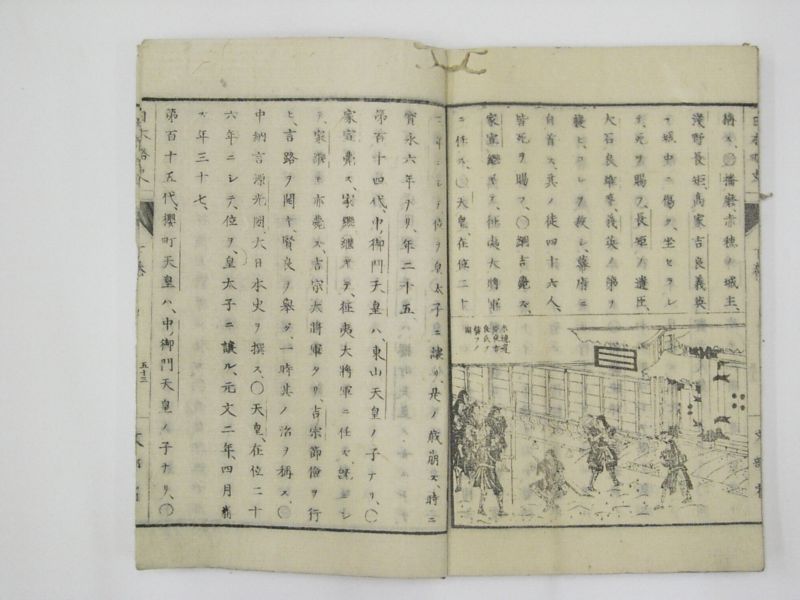 播磨赤穂ノ城主、
淺野長矩、高家吉良義英
ヲ城中ニ傷ケ、坐セラレ
テ死ヲ賜フ、長矩ノ遺臣、
大石良雄等、義英ノ第ヲ
襲ヒ、コレヲ殺シ、幕府ニ
自首ス、其ノ徒四十六人、
皆死ヲ賜フ、〇綱吉薨ス、
家宣継キテ、征夷大將軍
ニ任ス、〇天皇在位二十
二年ニシテ位ヲ皇太子ニ讓リ、是ノ歳崩ス、時ニ
寳永六年ナリ、年三十五、
第百十四代、中御門天皇ハ、東山天皇ノ子ナリ、〇
家宣薨ス、家繼継キテ、征夷大將軍ニ任ス、
ク、家繼モ亦薨ス、吉宗大將軍タリ、吉宗節儉ヲ行
ヒ、言路ヲ開キ、賢良ヲ舉ク、一時其ノ治ヲ稱ス、〇
中納言源光圀、大日本史ヲ撰ス、〇天皇、在位二十
六年ニシテ、位ヲ、皇太子ニ讓ル、元文二年四月崩
ス年三十七、
第百十五代、櫻町天皇ハ、中御門天皇ノ子ナリ、〇
五十三